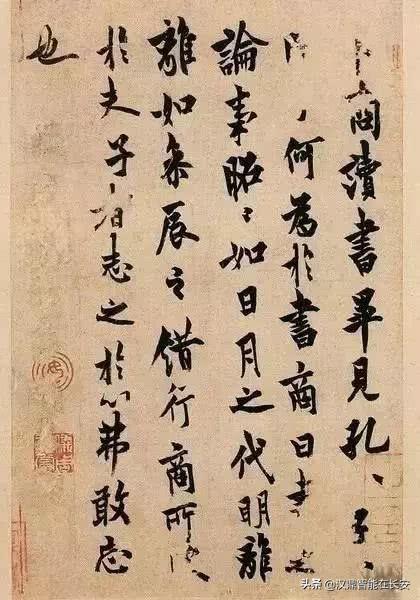 商讀書畢見孔〻子〻
何為於書商曰書之
論事昭〻如日月之代明離
離如參辰之錯行商所
於夫子者志之於心弗敢忘
也
头条 @汉鼎智能在长安